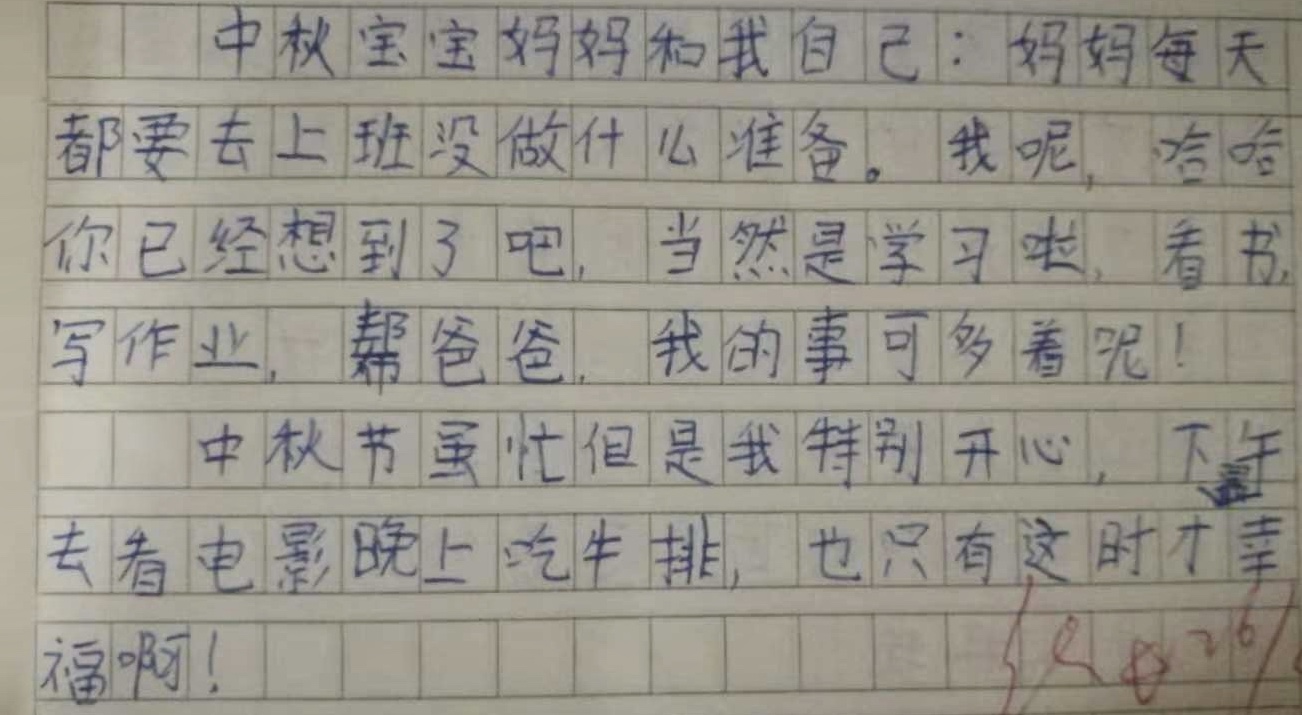 中秋宝宝妈妈和我自己：妈妈每天
都要去上班没做什么准备。我呢，哈哈
你已经想到了吧，当然是学习啦，看书，
写作业，帮爸爸，我的事可多着呢！
中秋节虽忙但是我特别开心，下午
去看电影晚上吃牛排，也只有这时才幸
福啊！